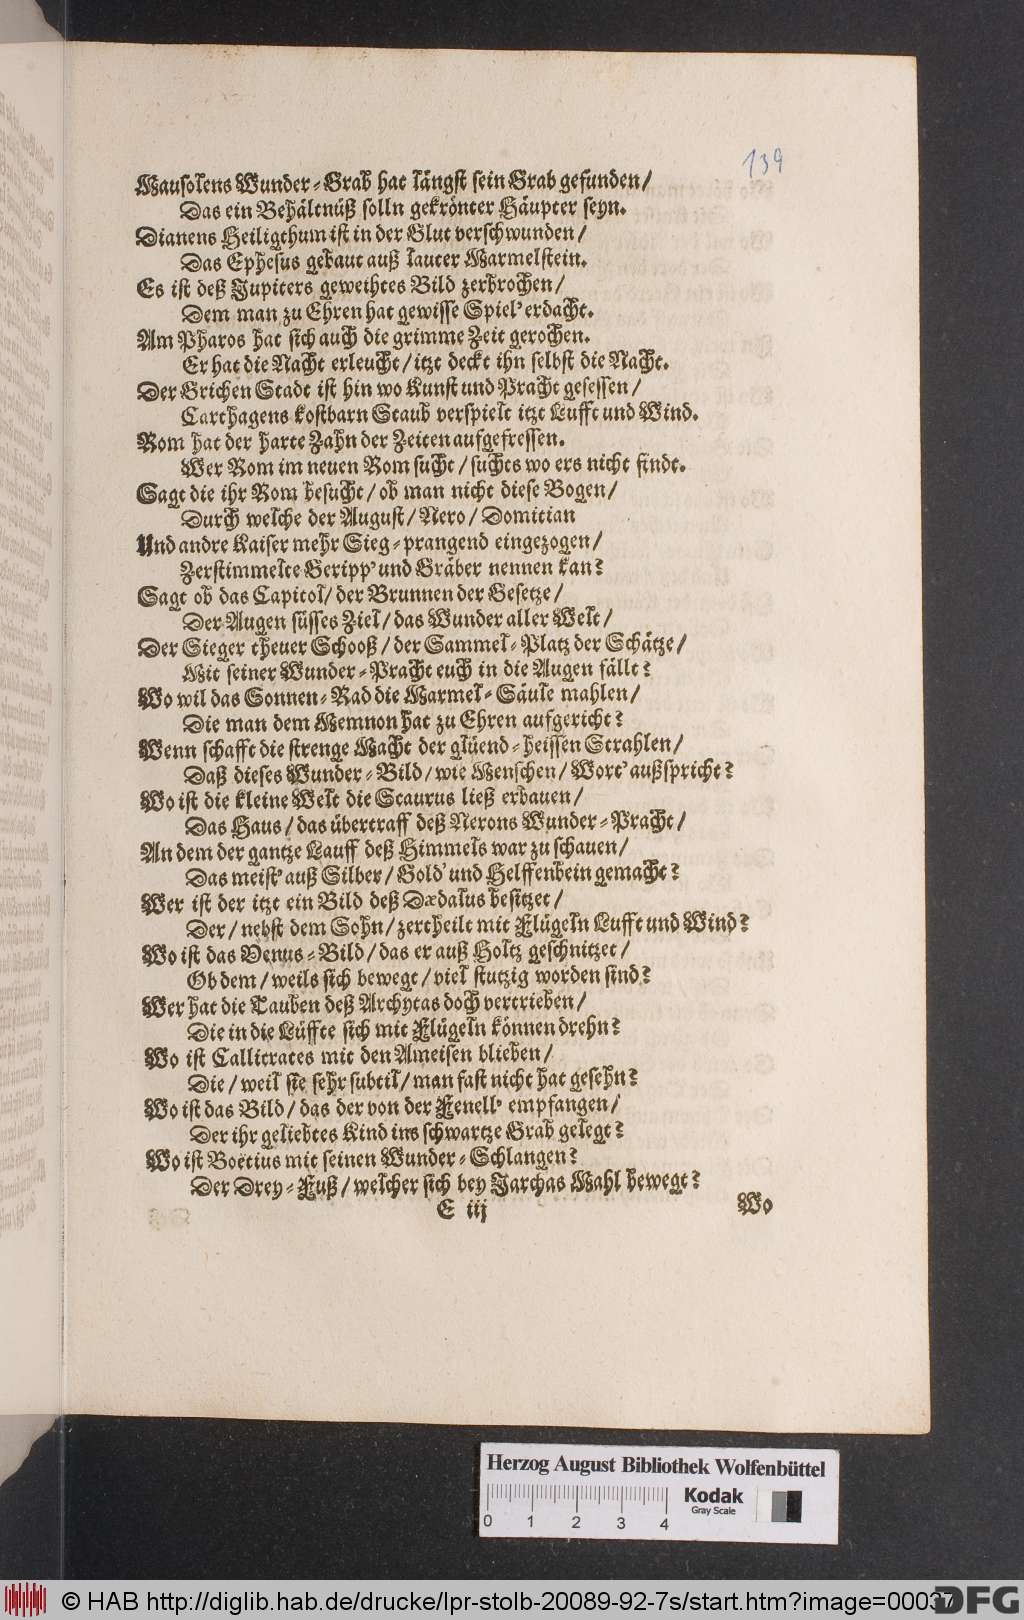 139
Mausolens Wunder-Grab hat längst sein Grab gefunden/
Das ein Behältnüß solln gekrönter Häupter seyn.
Dianens Heiligthum ist in der Glut verschwunden/
Das Ephesus gebaut auß lauter Marmelstein.
Es ist deß Jupiters geweihtes Bild zerbrochen/
Dem man zu Ehren hat gewisse Spiel' erdacht.
Am Pharos hat sich auch die grimme Zeit gerochen.
Er hat die Nacht erleucht/ itzt deckt ihn selbst die Nacht.
Der Grichen Stadt ist hin wo Kunst und Pracht gesessen/
Carthagens kostbarn Staub verspielt itzt Lufft und Wind.
Rom hat der harte Zahn der Zeiten aufgefressen.
Wer Rom im neuen Rom sucht/ suchts wo ers nicht findt.
Sagt die ihr Rom besucht/ ob man nicht diese Bogen/
Durch welche der August/ Nero/ Domitian
Und andre Kaiser mehr Sieg-prangend eingezogen/
Zerstimmelte Geripp' und Gräber nennen kan?
Sagt ob das Capitol/ der Brunnen der Gesetze/
Der Augen süsses Ziel/ das Wunder aller Welt/
Der Sieger theuer Schooß/ der Sammel-Platz der Schätze/
Mit seiner Wunder-Pracht euch in die Augen fällt?
Wo wil das Sonnen-Rad die Marmel-Säule mahlen/
Die man dem Memnon hat zu Ehren aufgericht?
Wenn schafft die strenge Macht der glüend-heissen Strahlen/
Daß dieses Wunder-Bild/ wie Menschen/ Wort' außspricht?
Wo ist die kleine Welt die Scaurus ließ erbauen/
Das Haus/ das übertraff deß Nerons Wunder-Pracht/
An dem der gantze Lauff deß Himmels war zu schauen/
Das meist' auß Silber/ Gold' und Helffenbein gemacht?
Wer ist der itzt ein Bild deß Dædalus besitzet/
Der/ nebst dem Sohn/ zertheilt mit Flügeln Lufft und Wind?
Wo ist das Venus-Bild/ das er auß Holtz geschnitzet/
Ob dem/ weils sich bewegt/ viel stutzig worden sind?
Wer hat die Tauben deß Archytas doch vertrieben/
Die in die Lüffte sich mit Flügeln können drehn?
Wo ist Callicrates mit den Ameisen blieben/
Die/ weil sie sehr subtil/ man fast nicht hat gesehn?
Wo ist das Bild/ das der von der Fenell' empfangen/
Der ihr geliebtes Kind ins schwartze Grab gelegt?
Wo ist Boëtius mit seinen Wunder-Schlangen?
Der Drey-Fuß/ welcher sich bey Jarchas Mahl bewegt?
E iij
Wo
Herzog August Bibliothek Wolfenbüttel
Kodak
Gray Scale
0 1 2 3 4
© HAB http://diglib.hab.de/drucke/lpr-stolb-20089-92-7s/start.htm?image=00037
DFG